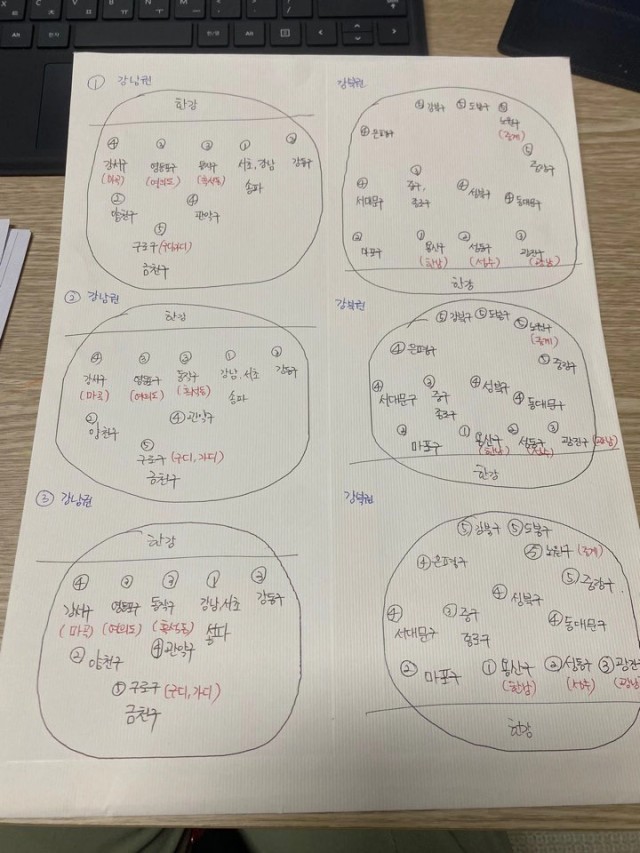 ① 강남권
한강
④ ② ③ ① ③
강서구 영등포구 동작구 서초, 강남 강동구
(마곡) (여의도) (흑석동) 송파
② ④
양천구 관악구
⑤
구로구 (구디가디)
금천구
강북권
⑤ 강북구 ⑤ 도봉구 ⑤
노원구
(중계)
④ 은평구
⑤
중랑구
④ ③ ④ 성북구 ④ 동대문구
서대문구 중구,
종로구
② ① ② ③
마포구 용산구 성동구 광진구
(한남) (성수) (광남)
한강
② 강남권
한강
④ ② ③ ① ③
강서구 영등포구 동작구 강남, 서초 강동구
(마곡) (여의도) (흑석동) 송파
② ④ 관악구
양천구
⑤
구로구 (구디, 가디)
금천구
강북권
⑤ 강북구 ⑤ 도봉구 ⑤ 노원구
(중계)
④ 은평구
⑤ 중랑구
④ ③ ④ 성북구
서대문구 중구 ④ 동대문구
종로구
② ① ② ③
마포구 용산구 성동구 광진구 (광남)
(한남) (성수)
한강
③ 강남권
한강
④ ② ③ ① ③
강서구 영등포구 동작구 강남, 서초 강동구
(마곡) (여의도) (흑석동) 송파
② 양천구 ④ 관악구
⑤ 구로구 (구디, 가디)
금천구
강북권
⑤ 강북구 ⑤ 도봉구
⑤ 노원구 (중계)
④ 은평구
⑤ 중랑구
④ 성북구
④ ③ 중구 ④ 동대문구
서대문구 종로구
② 마포구 ① 용산구 ② 성동구 ③ 광진구
(한남) (성수) (광남)
한강